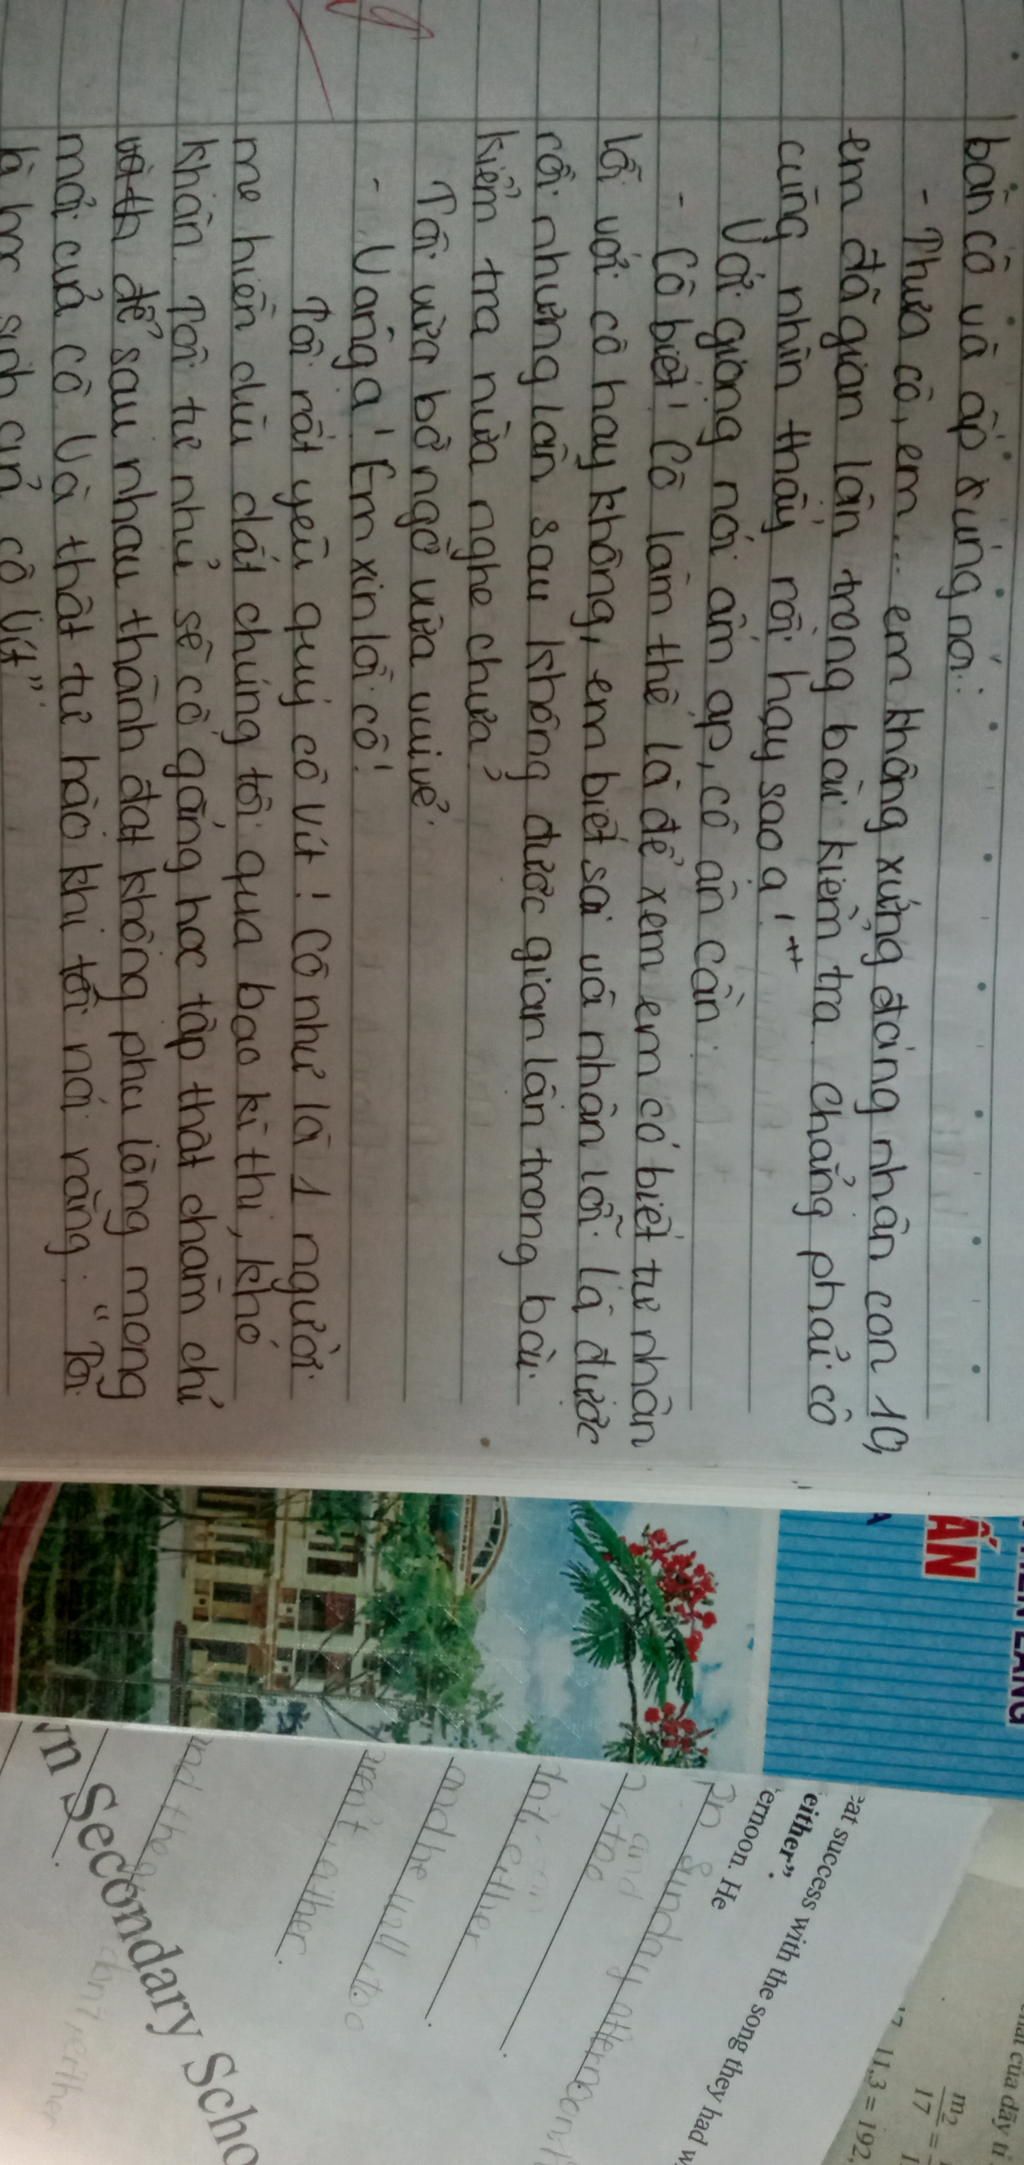 bàn cô và ấp úng nói:
- Thưa cô, em... em không xứng đáng nhận con 10,
em đã gian lận trong bài kiểm tra. Chẳng phải cô
cũng nhìn thấy rồi hay sao ạ!
Với giọng nói ấm áp, cô ân cần:
- Cô biết! Cô làm thế là để xem em có biết tự nhận
lỗi với cô hay không, em biết sai và nhận lỗi là được
rồi nhưng lần sau không được gian lận trong bài
kiểm tra nữa nghe chưa?
Tôi vừa bỡ ngỡ vừa vui vẻ:
- Vâng ạ! Em xin lỗi cô!
Tôi rất yêu quý cô Vít! Cô như là 1 người
mẹ hiền dìu dắt chúng tôi qua bao kì thi, khó
khăn. Tôi tự nhủ sẽ cố gắng học tập thật chăm chỉ
để sau nhau thành đạt không phụ lòng mong
mỏi của cô. Và thật tự hào khi tôi nói rằng: "Tôi
là học sinh của cô Vít"
ẤN
eat success with the song they had w
"either".
ernoon. He
on Sunday afternoon
and
too
don't either
and he will, too
either.
and they
don't either
n Secondary Scho
của dãy tỉ
m2
17
11,3 = 192,